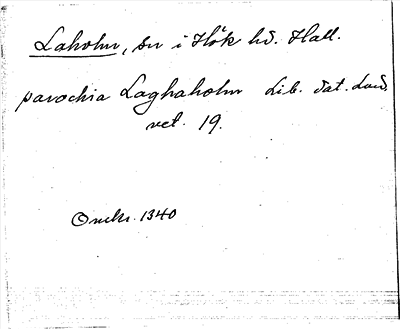 Laholm, sn i Höks hd. Hall.
parochia Laghaholm Lib. dat. Lund.
vet. 19.
Omkr. 1340